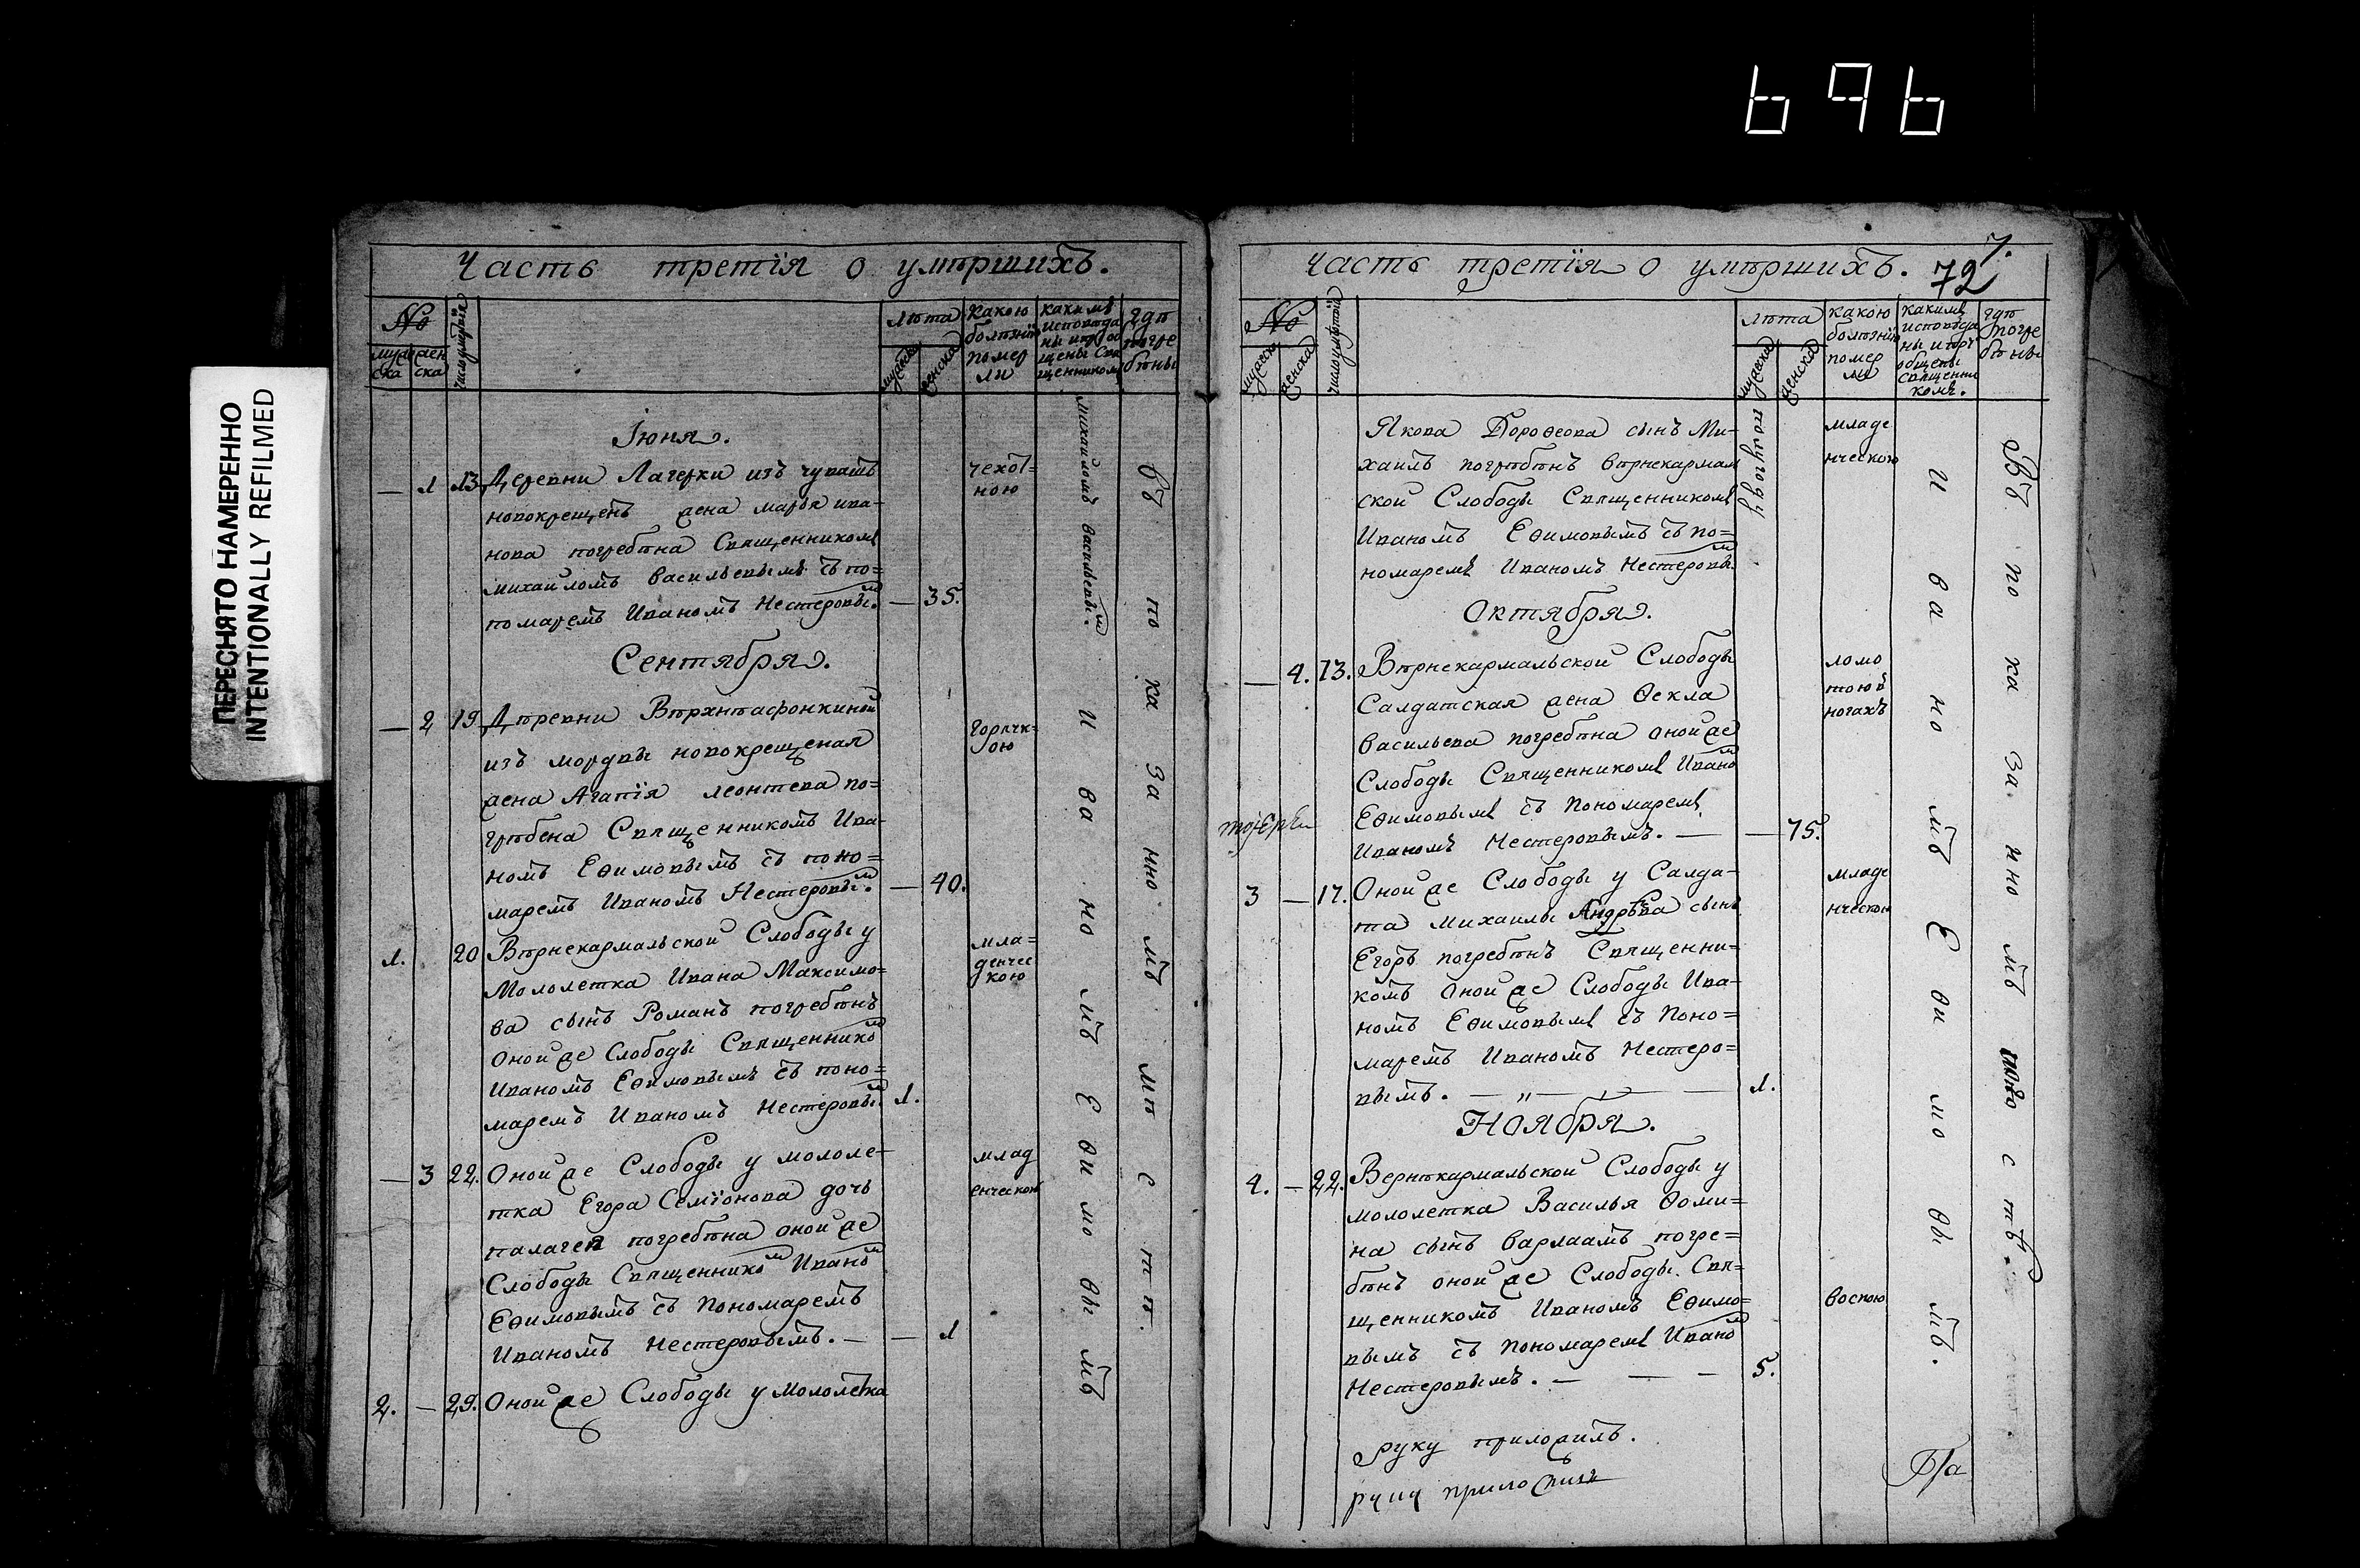 696
ПЕРЕСНЯТО НАМЕРЕННО
INTENTIONALLY REFILMED
Часть третїя о умѣршихъ.
№
муже
ска
жен
ска
число умертїя
лѣта
мужеска
женска
какою
болѣзнїю
помер
ли
какимъ
исповѣда
ны и прїоб
щены Свя
щенникомъ
гдѣ
погре
бѣны
Іюня.
— 1 13 Деревни Лагерки изъ чувашъ
новокрещенъ жена марья ива-
нова погребѣна Священникомъ
михаиломъ васильевымъ съ по=
номаремъ Иваномъ Нестеровым. — 35.
чехот=
ною
михаиломъ васильевым.
Сентября.
— 2 19 Дѣревни Вѣрхнѣафонкиной
изъ мордвы новокрещеная
жена Агапїя леонтева по=
грѣбена Священникомъ Ива-
номъ Ефимовымъ съ поно=
маремъ Иваномъ Нестеровым. — 40.
горячк=
ою
1. 20 Вѣрнекармальской Слободы у
Молологетка Ивана Максимо=
ва сынъ Романъ погребѣнъ
оной же Слободы Священником
Иваномъ Ефимовымъ съ поно=
маремъ Иваномъ Нестеровым 1.
мла=
денчес
кою
— 3 22. Оной же Слободы у мололе-
тка Егора Семїонова дочь
палагея погребѣна оной же
Слободы Священником Иваном
Ефимовымъ съ Пономаремъ
Иваномъ Нестеровымъ. — — 1
млад
енческою
2. — 29. Оной же Слободы у Мололетка
Иваномъ Ефимовымъ
въ показанномъ мѣстѣ.
Часть третїя о умѣршихъ.
7.
72
№
мужеска
женска
число умертїи
лѣта
мужеска
женска
какою
болѣзнїю
помер
ли
какимъ
исповѣда
ны и прї
общены
священни
комъ.
гдѣ
погре
бѣны
Якова Дорофеева сынъ Ми-
хаилъ погрѣбѣнъ вѣрнекармал
ской Слободы Священникомъ
Иваномъ Ефимовымъ съ по=
номаремъ Иваномъ Нестеровым
полугоду
младе
нческою
Октября.
— 4. 13. Вѣрнекармальской Слободы
Салдатская жена Фекла
васильева погребѣна оной же
Слободы Священникомъ Иваном
Ефимовымъ съ Пономаремъ
Иваномъ Нестеровымъ. — — 75.
ломо
тою в
ногахъ
3 — 17. Оной же Слободы у Салда-
та Михаилы Андрѣева сынъ
Егоръ погребѣнъ Священни-
комъ Оной же Слободы Ива-
номъ Ефимовымъ съ Поно=
маремъ Иваномъ Нестеро=
вымъ. — „ — — 1.
младе
нческою
Ноября.
4. — 22. Вернѣкармальской Слободы у
мололетка Василья Фоми=
на сынъ варлаамъ погре=
бѣнъ оной же Слободы Свя=
щенникомъ Иваномъ Ефимо=
вымъ съ Пономаремъ Иваном
Нестеровымъ. — — — 5.
воспою
Иваномъ Ефимовымъ.
Въ показанномъ мѣстѣ.
руку приложилъ.
руку приложилъ